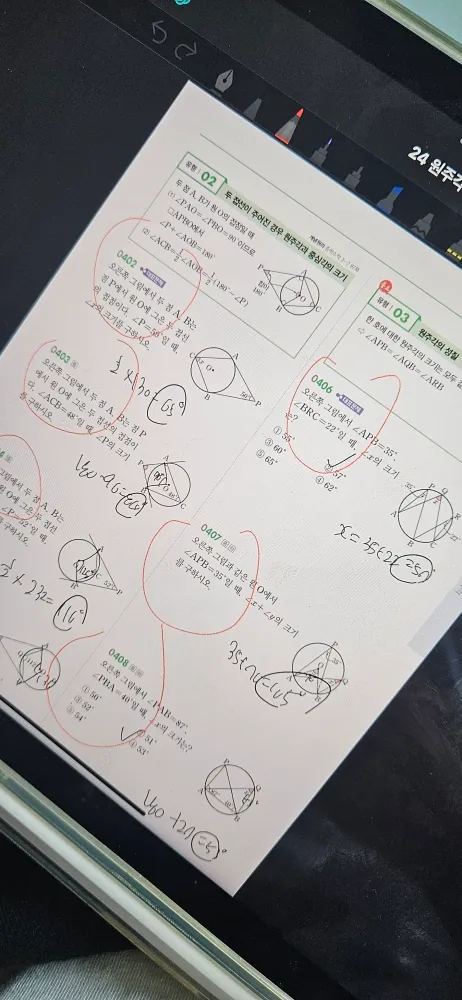 24 원주각
유형 02 두 접선이 주어진 경우 원주각과 중심각의 크기
두 점 A, B가 원 O의 접점일 때
① ∠PAO=∠PBO=90°이므로
□APBO에서
∠P+∠AOB=180°
② ∠ACB=½∠AOB=½(180°-∠P)
0402 대표문제
오른쪽 그림에서 두 점 A, B는
점 P에서 원 O에 그은 두 접선
의 접점이다. ∠P=50°일 때,
∠x의 크기를 구하시오.
½×130=65°
0403
오른쪽 그림에서 두 점 A, B는 점 P
에서 원 O에 그은 두 접선의 접점이
다. ∠ACB=48°일 때, ∠P의 크기
를 구하시오.
180-96=84°
그림에서 두 점 A, B는
원 O에 그은 두 접선
∠P=52°일 때,
½×232=
116°
유형 03 원주각의 성질
한 호에 대한 원주각의 크기는 모두 같
⇨ ∠APB=∠AQB=∠ARB
0406 대표문제
오른쪽 그림에서 ∠APB=35°,
∠BRC=22°일 때, ∠x의 크기
는?
① 55° ② 57°
③ 60° ④ 62°
⑤ 65°
x=35+22=57°
0407
오른쪽 그림과 같은 원 O에서
∠APB=35°일 때, ∠x+∠y의 크기
를 구하시오.
35+70=105°
0408
오른쪽 그림에서 ∠PAB=82°,
∠PBA=46°일 때, ∠x의 크기는?
① 50° ② 51°
③ 52° ④ 53°
⑤ 54°